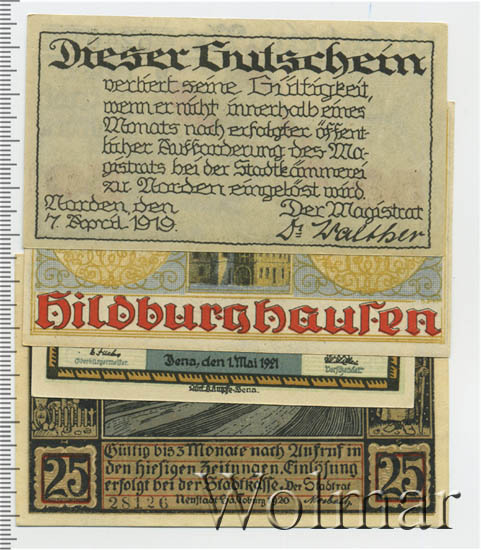 Dieser Gutschein
verliert seine Gültigkeit,
wenn er nicht innerhalb eines
Monats nach erfolgter öffent-
licher Aufforderung des Ma-
gistrats bei der Stadtkämmerei
zu Norden eingelöst wird.
Norden, den
7. April 1919.
Der Magistrat
Dr Walther
Hildburghausen
Oberbürgermeister.
Jena, den 1. Mai 1921
Vorsitzender
25
Gültig bis 3 Monate nach Aufruf in
den hiesigen Zeitungen. Einlösung
erfolgt bei der Stadtkasse. Der Stadtrat
28126
Neustadt
Coburg 1920
25
Wolmar